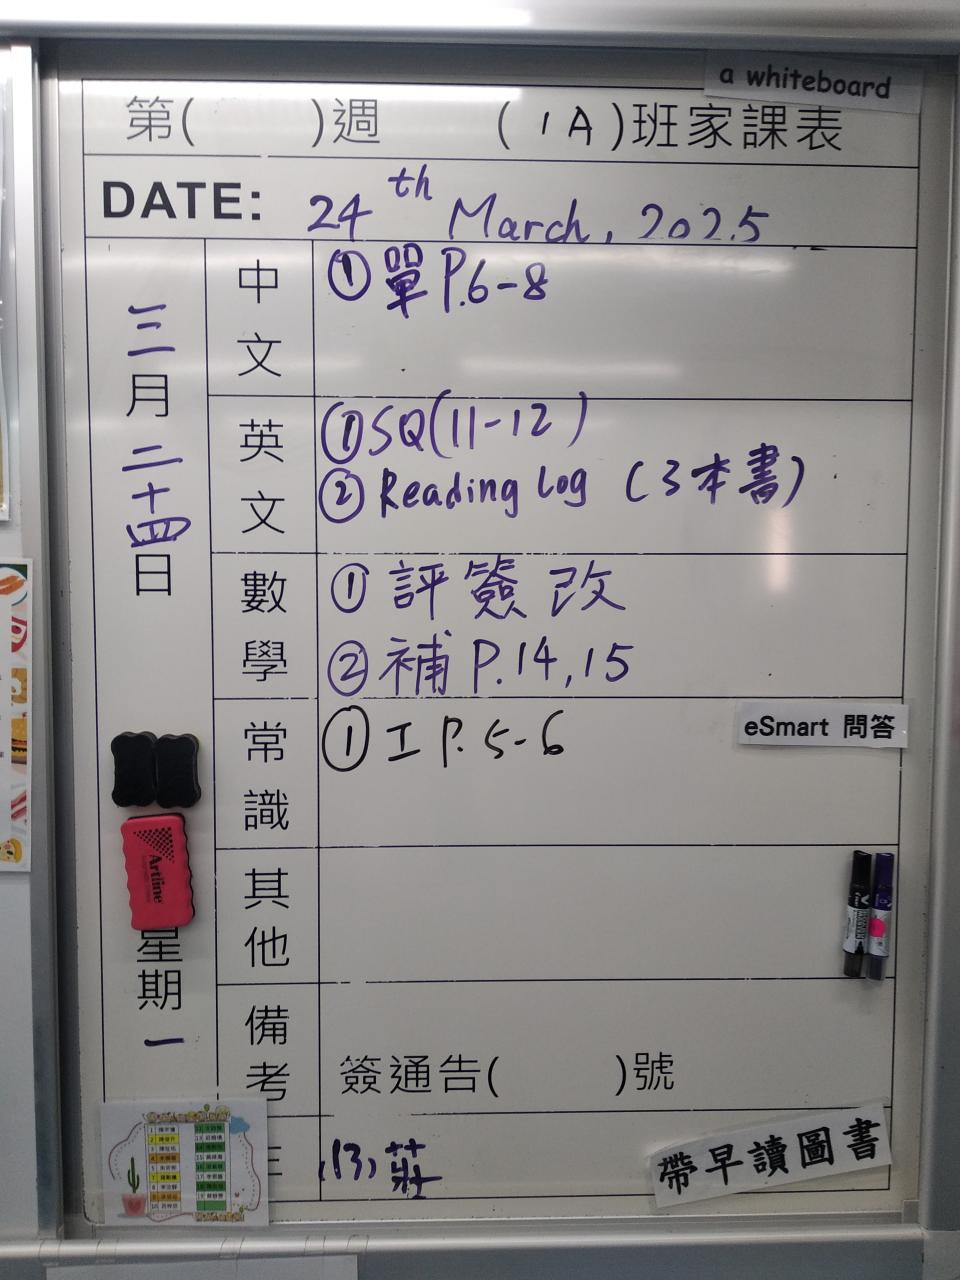 a whiteboard
第( )週 (1A)班家課表
DATE: 24th March, 2025
三月二十四日
星期一
中文
①單P.6-8
英文
①SQ(11-12)
②Reading Log (3本書)
數學
①評簽改
②補P.14,15
常識
①工P.5-6
eSmart 問答
其他
備考
簽通告( )號
(13)莊
帶早讀圖書
Artline